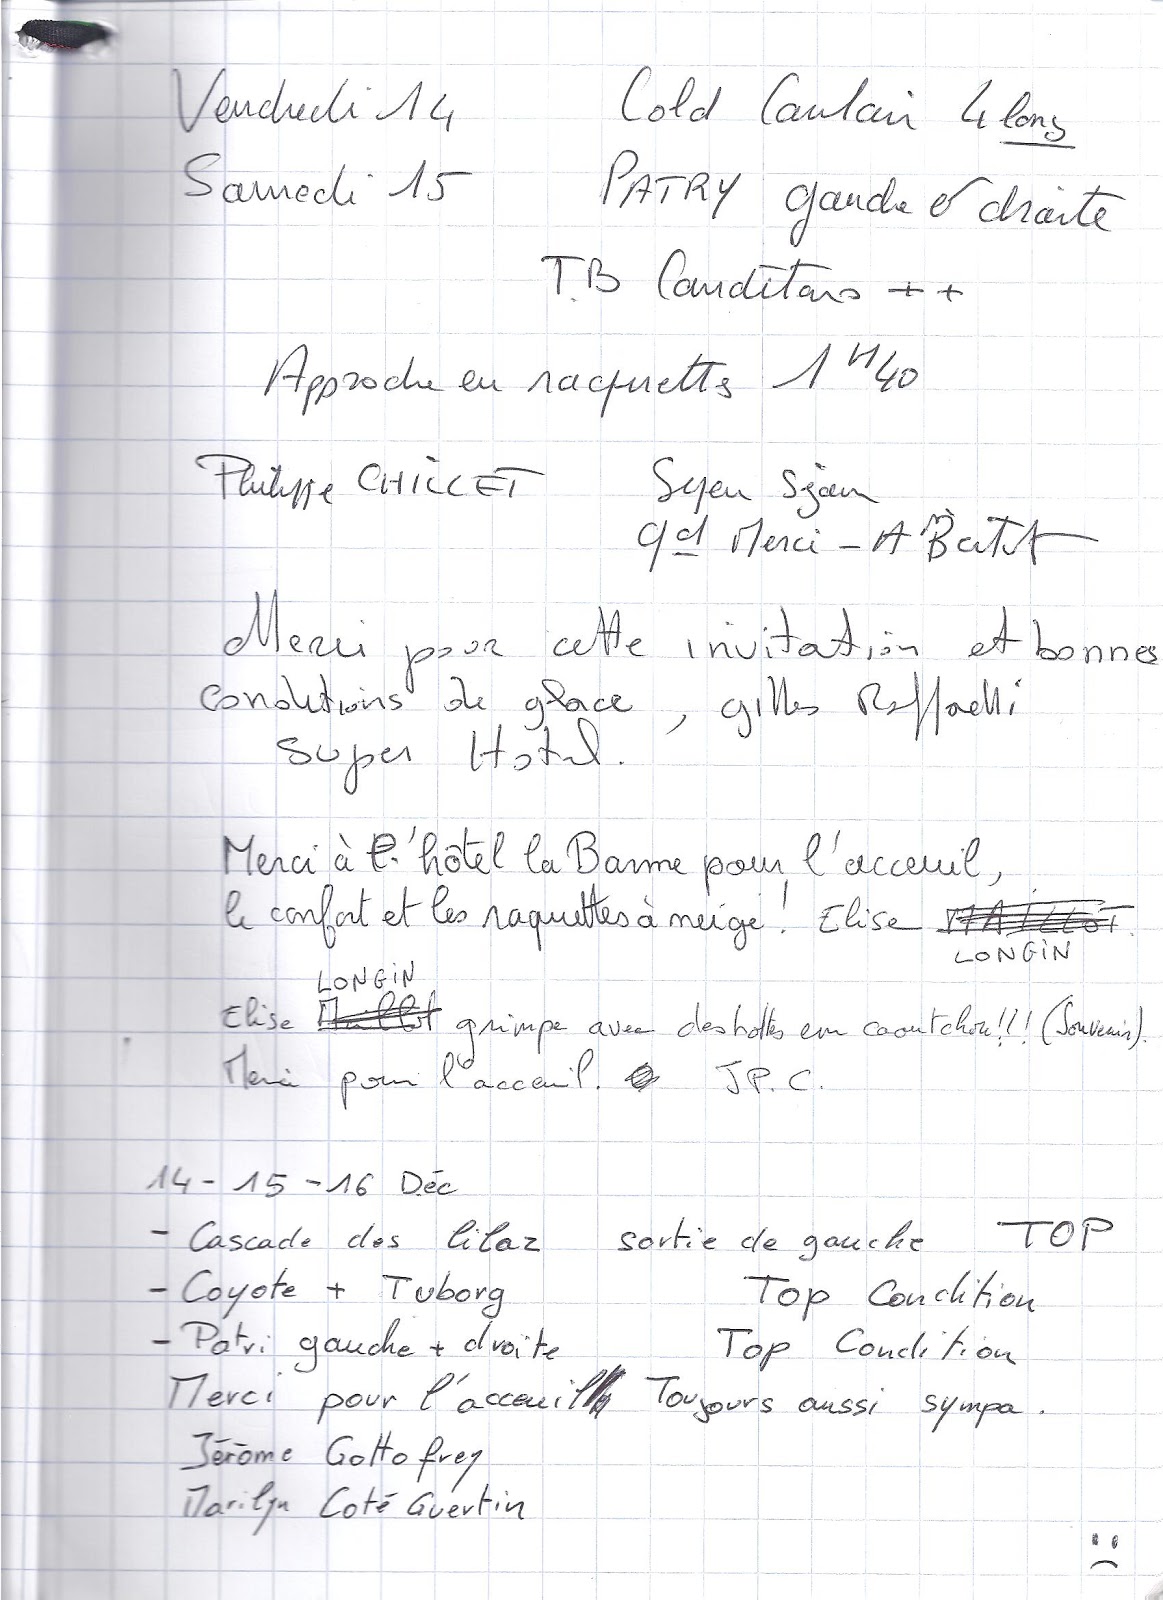 Vendredi 14 Cold Couloir 4 long
Samedi 15 PATRY gauche et droite
T.B Conditions ++
Approche en raquettes 1H40
Philippe CHILLET
gd Merci - A
Merci pour cette invitation et bonnes
conditions de glace, gilles Raffaelli
super Hotel.
Merci à l'hôtel la Barme pour l'acceuil,
le confort et les raquettes à neige! Elise MAILLOT
LONGIN
LONGIN
Elise Maillot grimpe avec des bottes em caoutchou!!! (Souvenir).
Merci pour l'acceuil. JP. C.
14 - 15 - 16 Déc
- Cascade des lilaz sortie de gauche TOP
- Coyote + Tuborg Top Condition
- Patri gauche + droite Top Condition
Merci pour l'acceuil Toujours aussi sympa.
Jérôme Gottofrey
Marilyn Coté Guertin